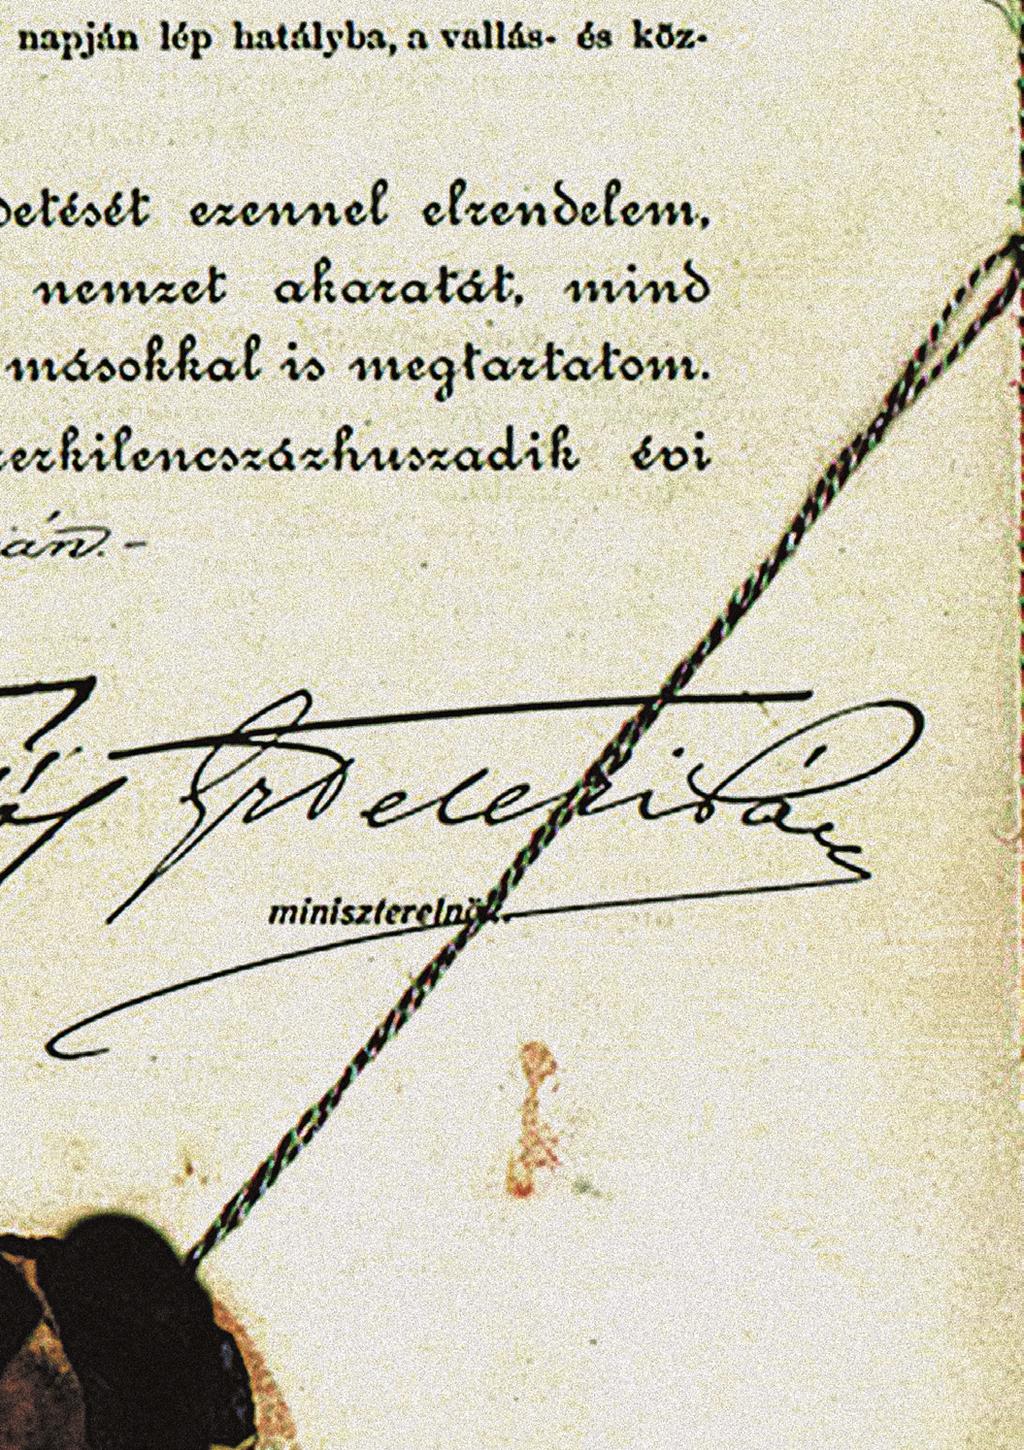 napján lép hatályba, a vallás- és köz-
detését ezennel elrendelem,
nemzet akaratát, mind
másokkal is megtartatom.
zerkilencszázhuszadik évi
ján.-
miniszterelnök.